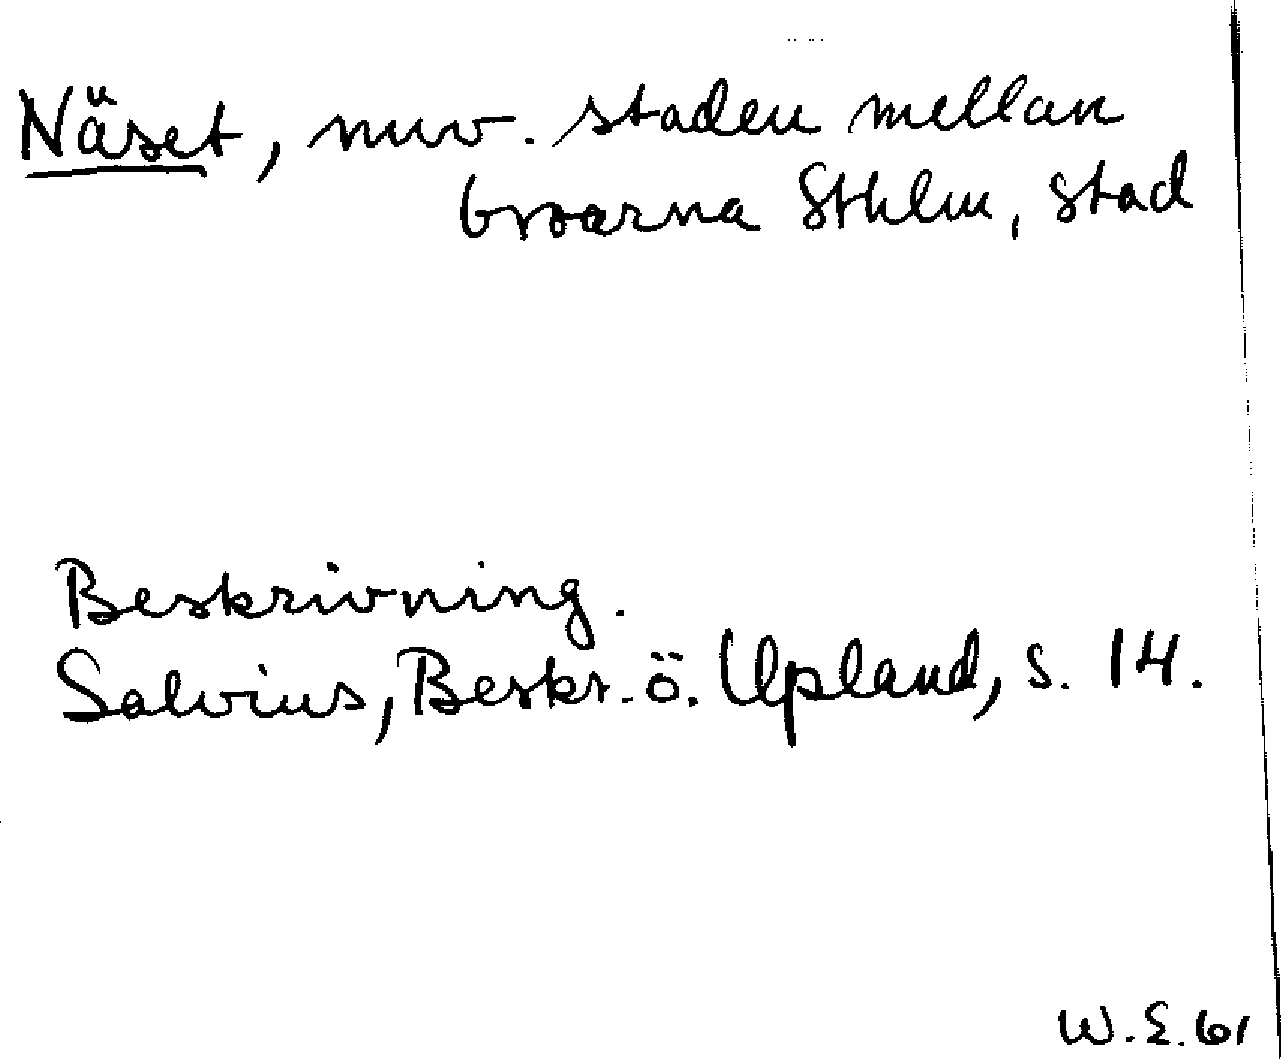 Näset, nuv. staden mellan
broarna Sthlm, stad
Beskrivning.
Salvius, Beskr. ö. Upland, s. 14.
W.E. 61